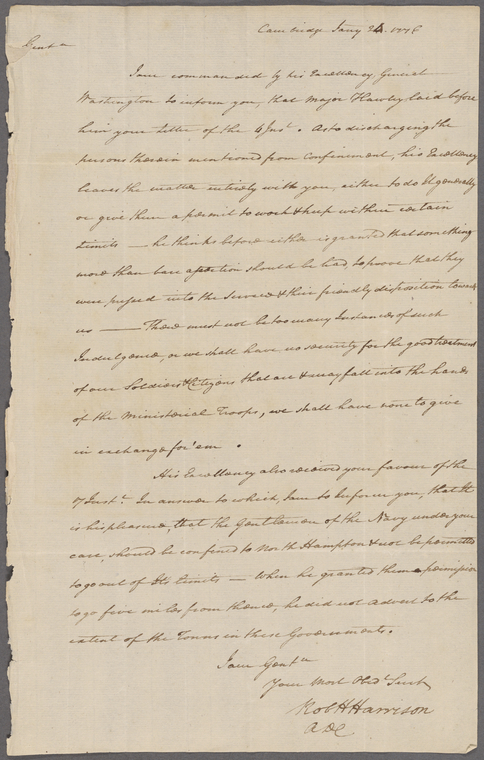 Cambridge Jany 1776
Gentn
I am commanded by his Excellency General
Washington to inform you, that Major Hawley laid before
him your Letter of the 4 Inst. As to discharging the
persons therein mentioned from confinement, his Excellency
leaves the matter entirely with you, either to do it generally
or give them a permit to work & keep within certain
Limits — he thinks before either is granted that something
more than bare assertion should be had, to prove that they
were pressed into the Service & their friendly disposition towards
us — There must not be too many Instances of such
Indulgence, or we shall have no security for the good treatment
of our Soldiers & Citizens that are & may fall into the hands
of the Ministerial Troops, we shall have none to give
in exchange for 'em.
His Excellency also received your favour of the
7 Inst. In answer to which, I am to inform you, that It
is his pleasure, that the Gentlemen of the Navy under your
care, should be confined to North Hampton & not be permitted
to go out of Its Limits — When he granted them a permission
to go five miles from thence, he did not advert to the
extent of the Towns in these Governments.
I am Gentn
Your Most Obedt Servt
Rob H Harrison
ADC